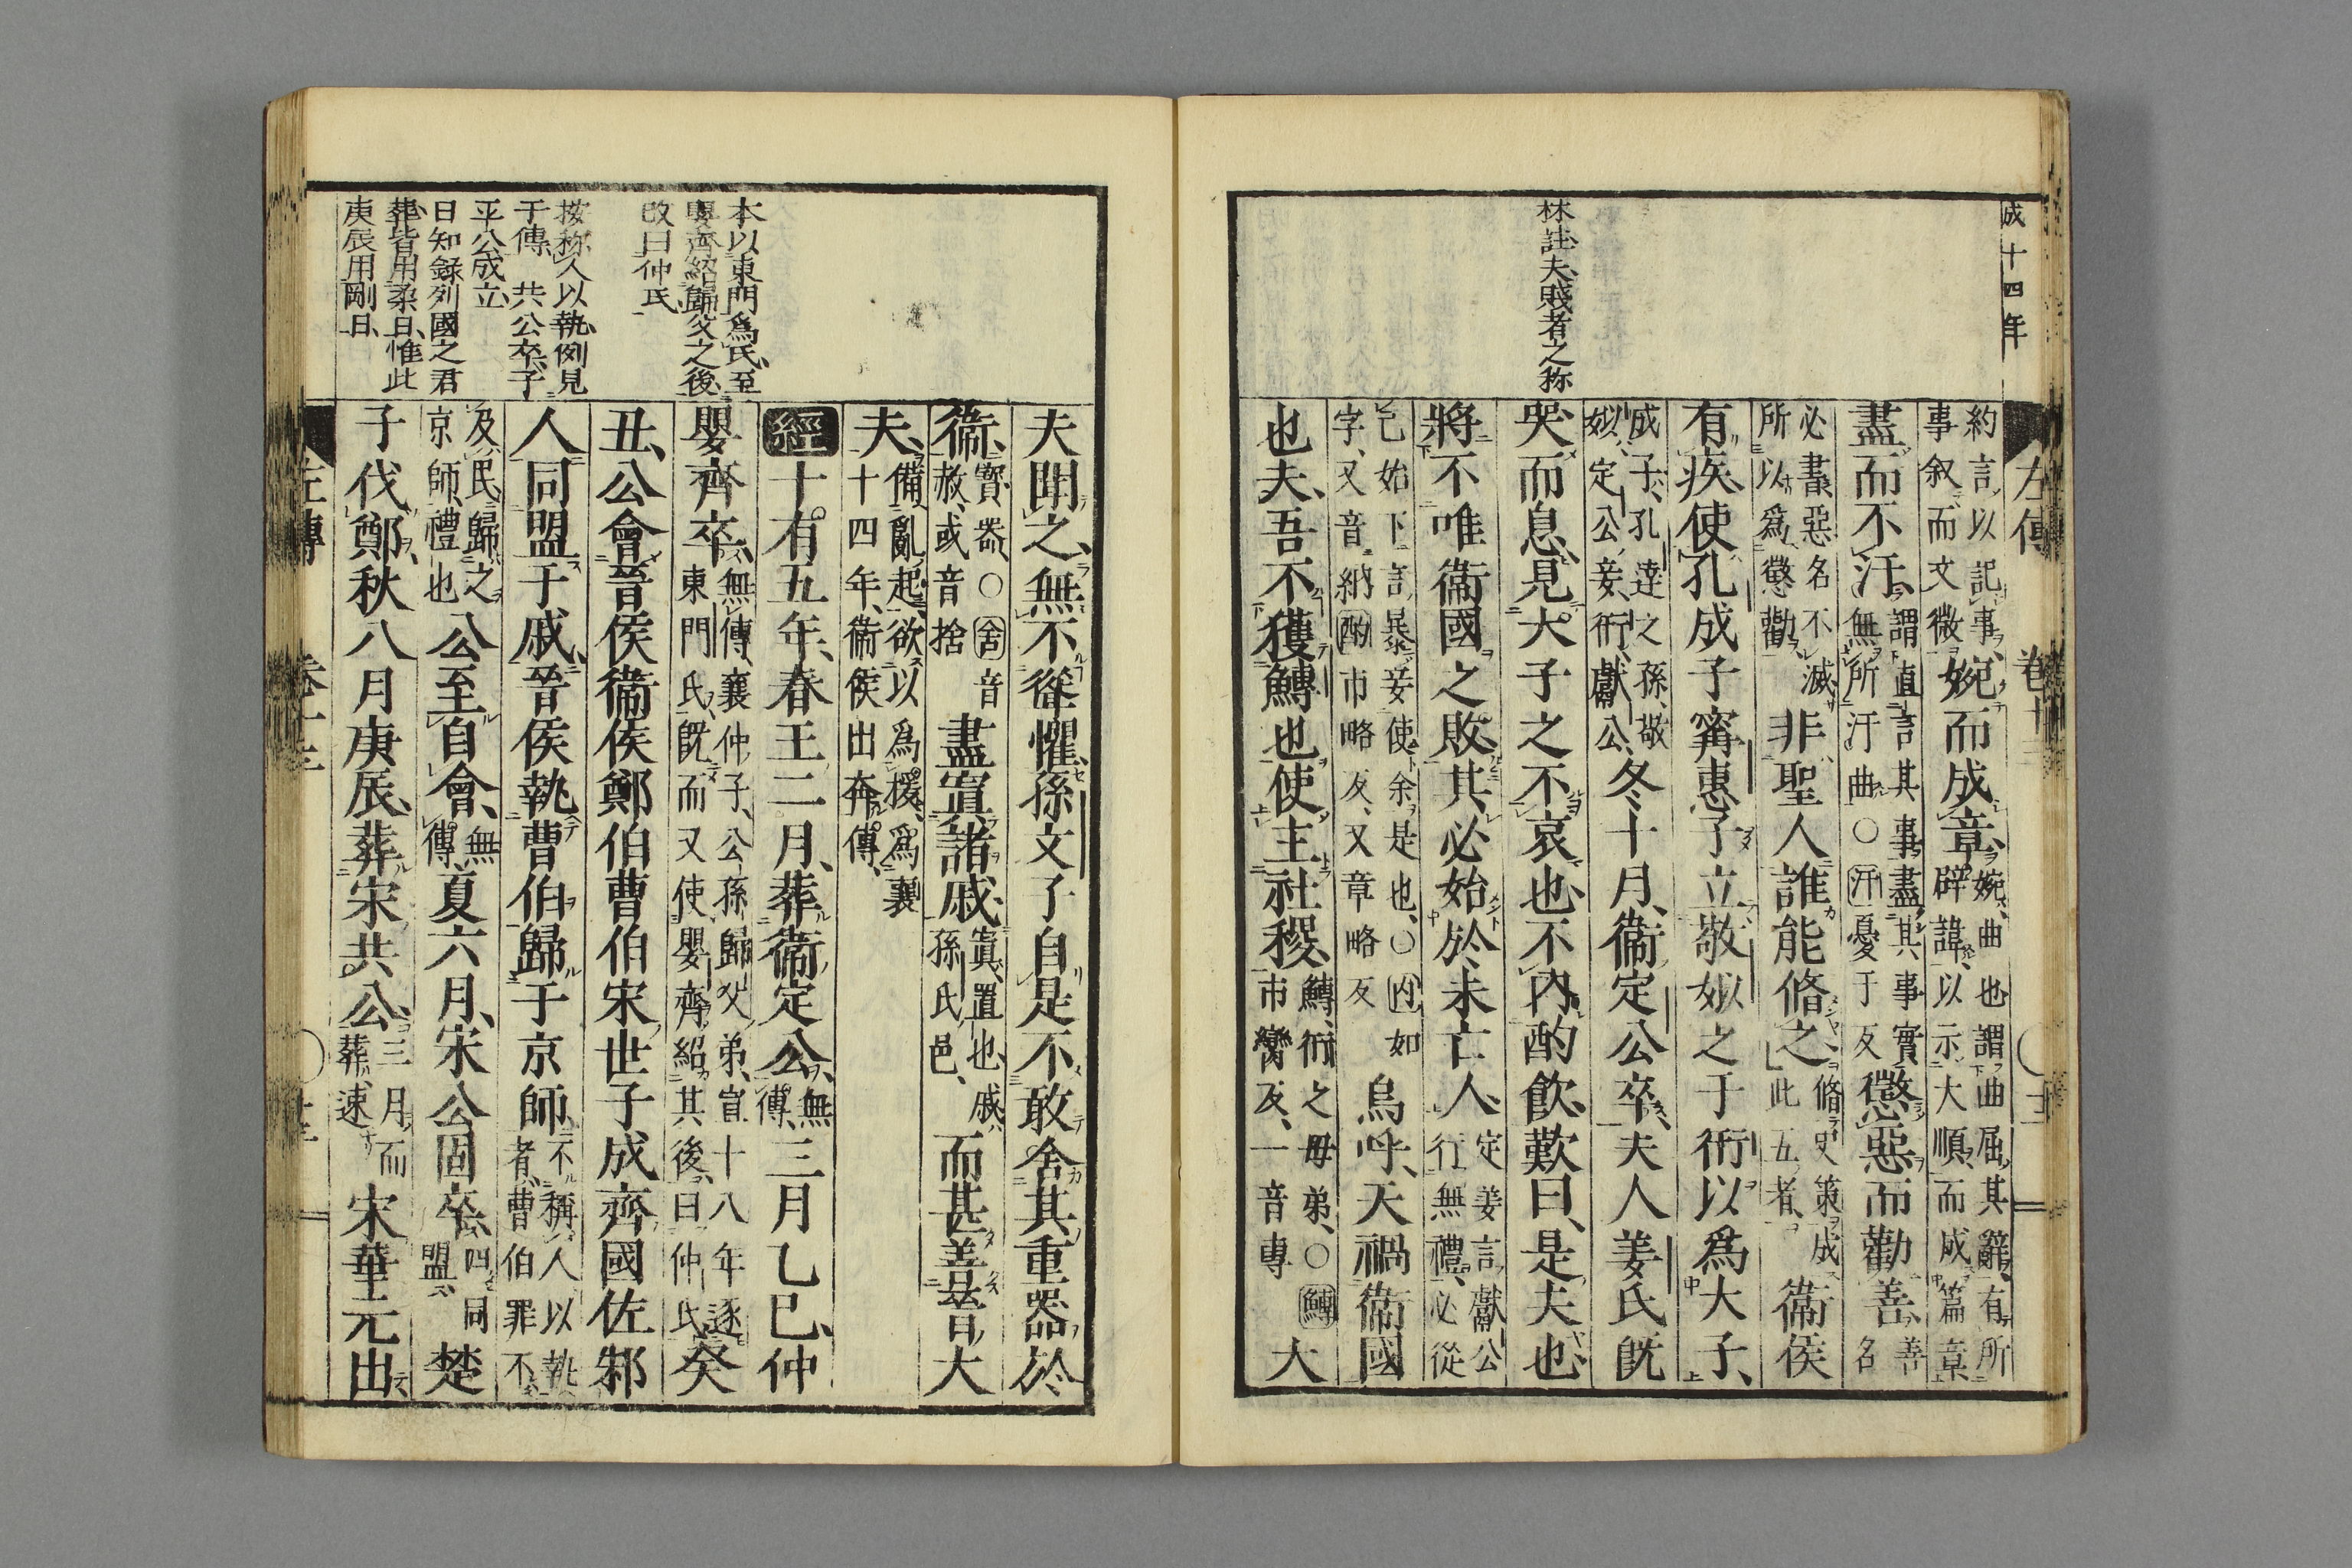 成十四年
左傳　卷十三
林註夫賤者之称
約言以記事事叙而文微婉而成章婉曲也謂曲屈其辭有所辟諱以示大順而成篇章
盡而不汙謂直言其事盡其事實無所汙曲〇汙憂于反懲惡而勸善善名
必書惡名不滅所以爲懲勸非聖人誰能脩之脩史策成此五者衞侯
有疾使孔成子甯惠子立敬姒之子衎以爲大子
成子孔達之孫敬姒定公妾衎獻公冬十月衞定公卒夫人姜氏旣
哭而息見大子之不哀也不內酌飲歎曰是夫也
將不唯衞國之敗其必始於未亡人定姜言獻公行無禮必從
己始下言暴妾使余是也〇內如字又音納酌市略反又章略反烏呼天禍衞國
也夫吾不獲鱄也使主社稷鱄衎之毋弟〇鱄市臠反一音專大
本以東門爲氏至
嬰齊紹歸父之後
改曰仲氏
按称人以執例見
于傳　共公卒子
平公成立
日知録列國之君
葬皆用柔日惟此
庚辰用剛日
夫聞之無不聳懼孫文子自是不敢舍其重器於
衞寳器〇舍音赦或音捨盡寘諸戚寘置也戚孫氏邑而甚善晉大
夫備亂起欲以爲援爲襄十四年衞侯出奔傳
經十有五年春王二月葬衞定公無傳三月乙巳仲
嬰齊卒無傳襄仲子公孫歸父弟宣十八年逐東門氏旣而又使嬰齊紹其後曰仲氏癸
丑公會晉侯衞侯鄭伯曹伯宋世子成齊國佐邾
人同盟于戚晉侯執曹伯歸于京師不稱人以執者曹伯罪不
及民歸之京師禮也公至自會無傳夏六月宋公固卒四同盟楚
子伐鄭秋八月庚辰葬宋共公三月而葬速宋華元出